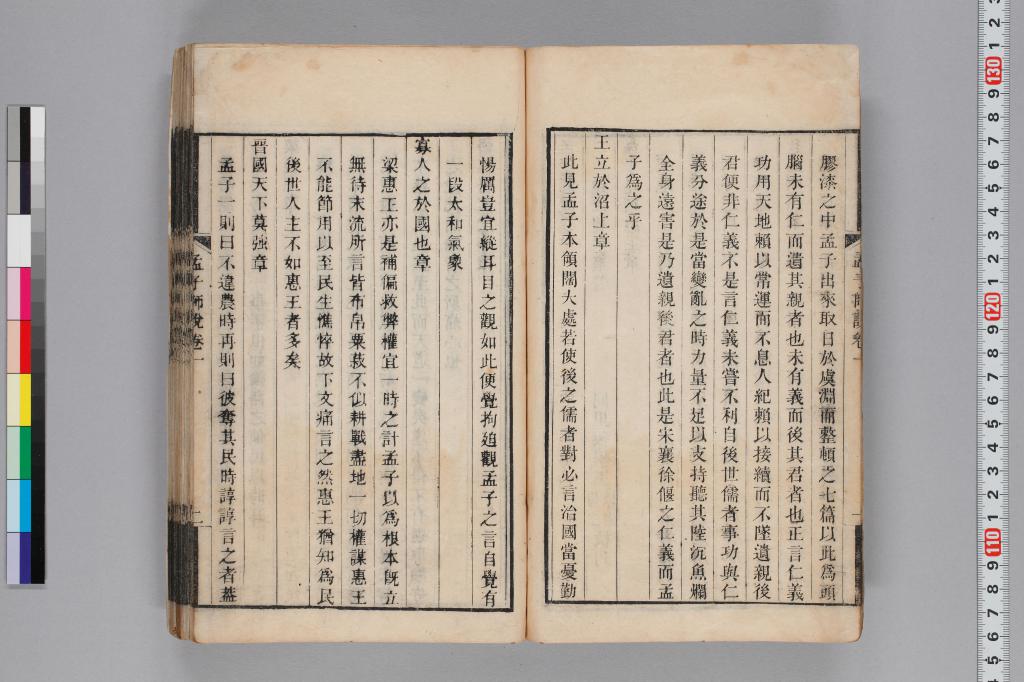 膠漆之中孟子出來取日於虞淵而整頓之七篇以此爲頭
腦未有仁而遺其親者也未有義而後其君者也正言仁義
功用天地賴以常運而不息人紀賴以接續而不墜遺親後
君便非仁義不是言仁義未嘗不利自後世儒者事功與仁
義分途於是當變亂之時力量不足以支持聽其陸沉魚爛
全身遠害是乃遺親後君者也此是宋襄徐偃之仁義而孟
子爲之乎
王立於沼上章
此見孟子本領闊大處若使後之儒者對必言治國當憂勤
孟子師說卷一
一
惕厲豈宜縱耳目之觀如此便覺拘廹觀孟子之言自覺有
一段太和氣象
寡人之於國也章
梁惠王亦是補偏救弊權宜一時之計孟子以爲根本旣立
無待末流所言皆布帛粟菽不似耕戰盡地一切權謀惠王
不能節用以至民生憔悴故下文痛言之然惠王猶知爲民
後世人主不如惠王者多矣
晉國天下莫强章
孟子一則曰不違農時再則曰彼奪其民時諄諄言之者蓋
孟子師說卷一
二